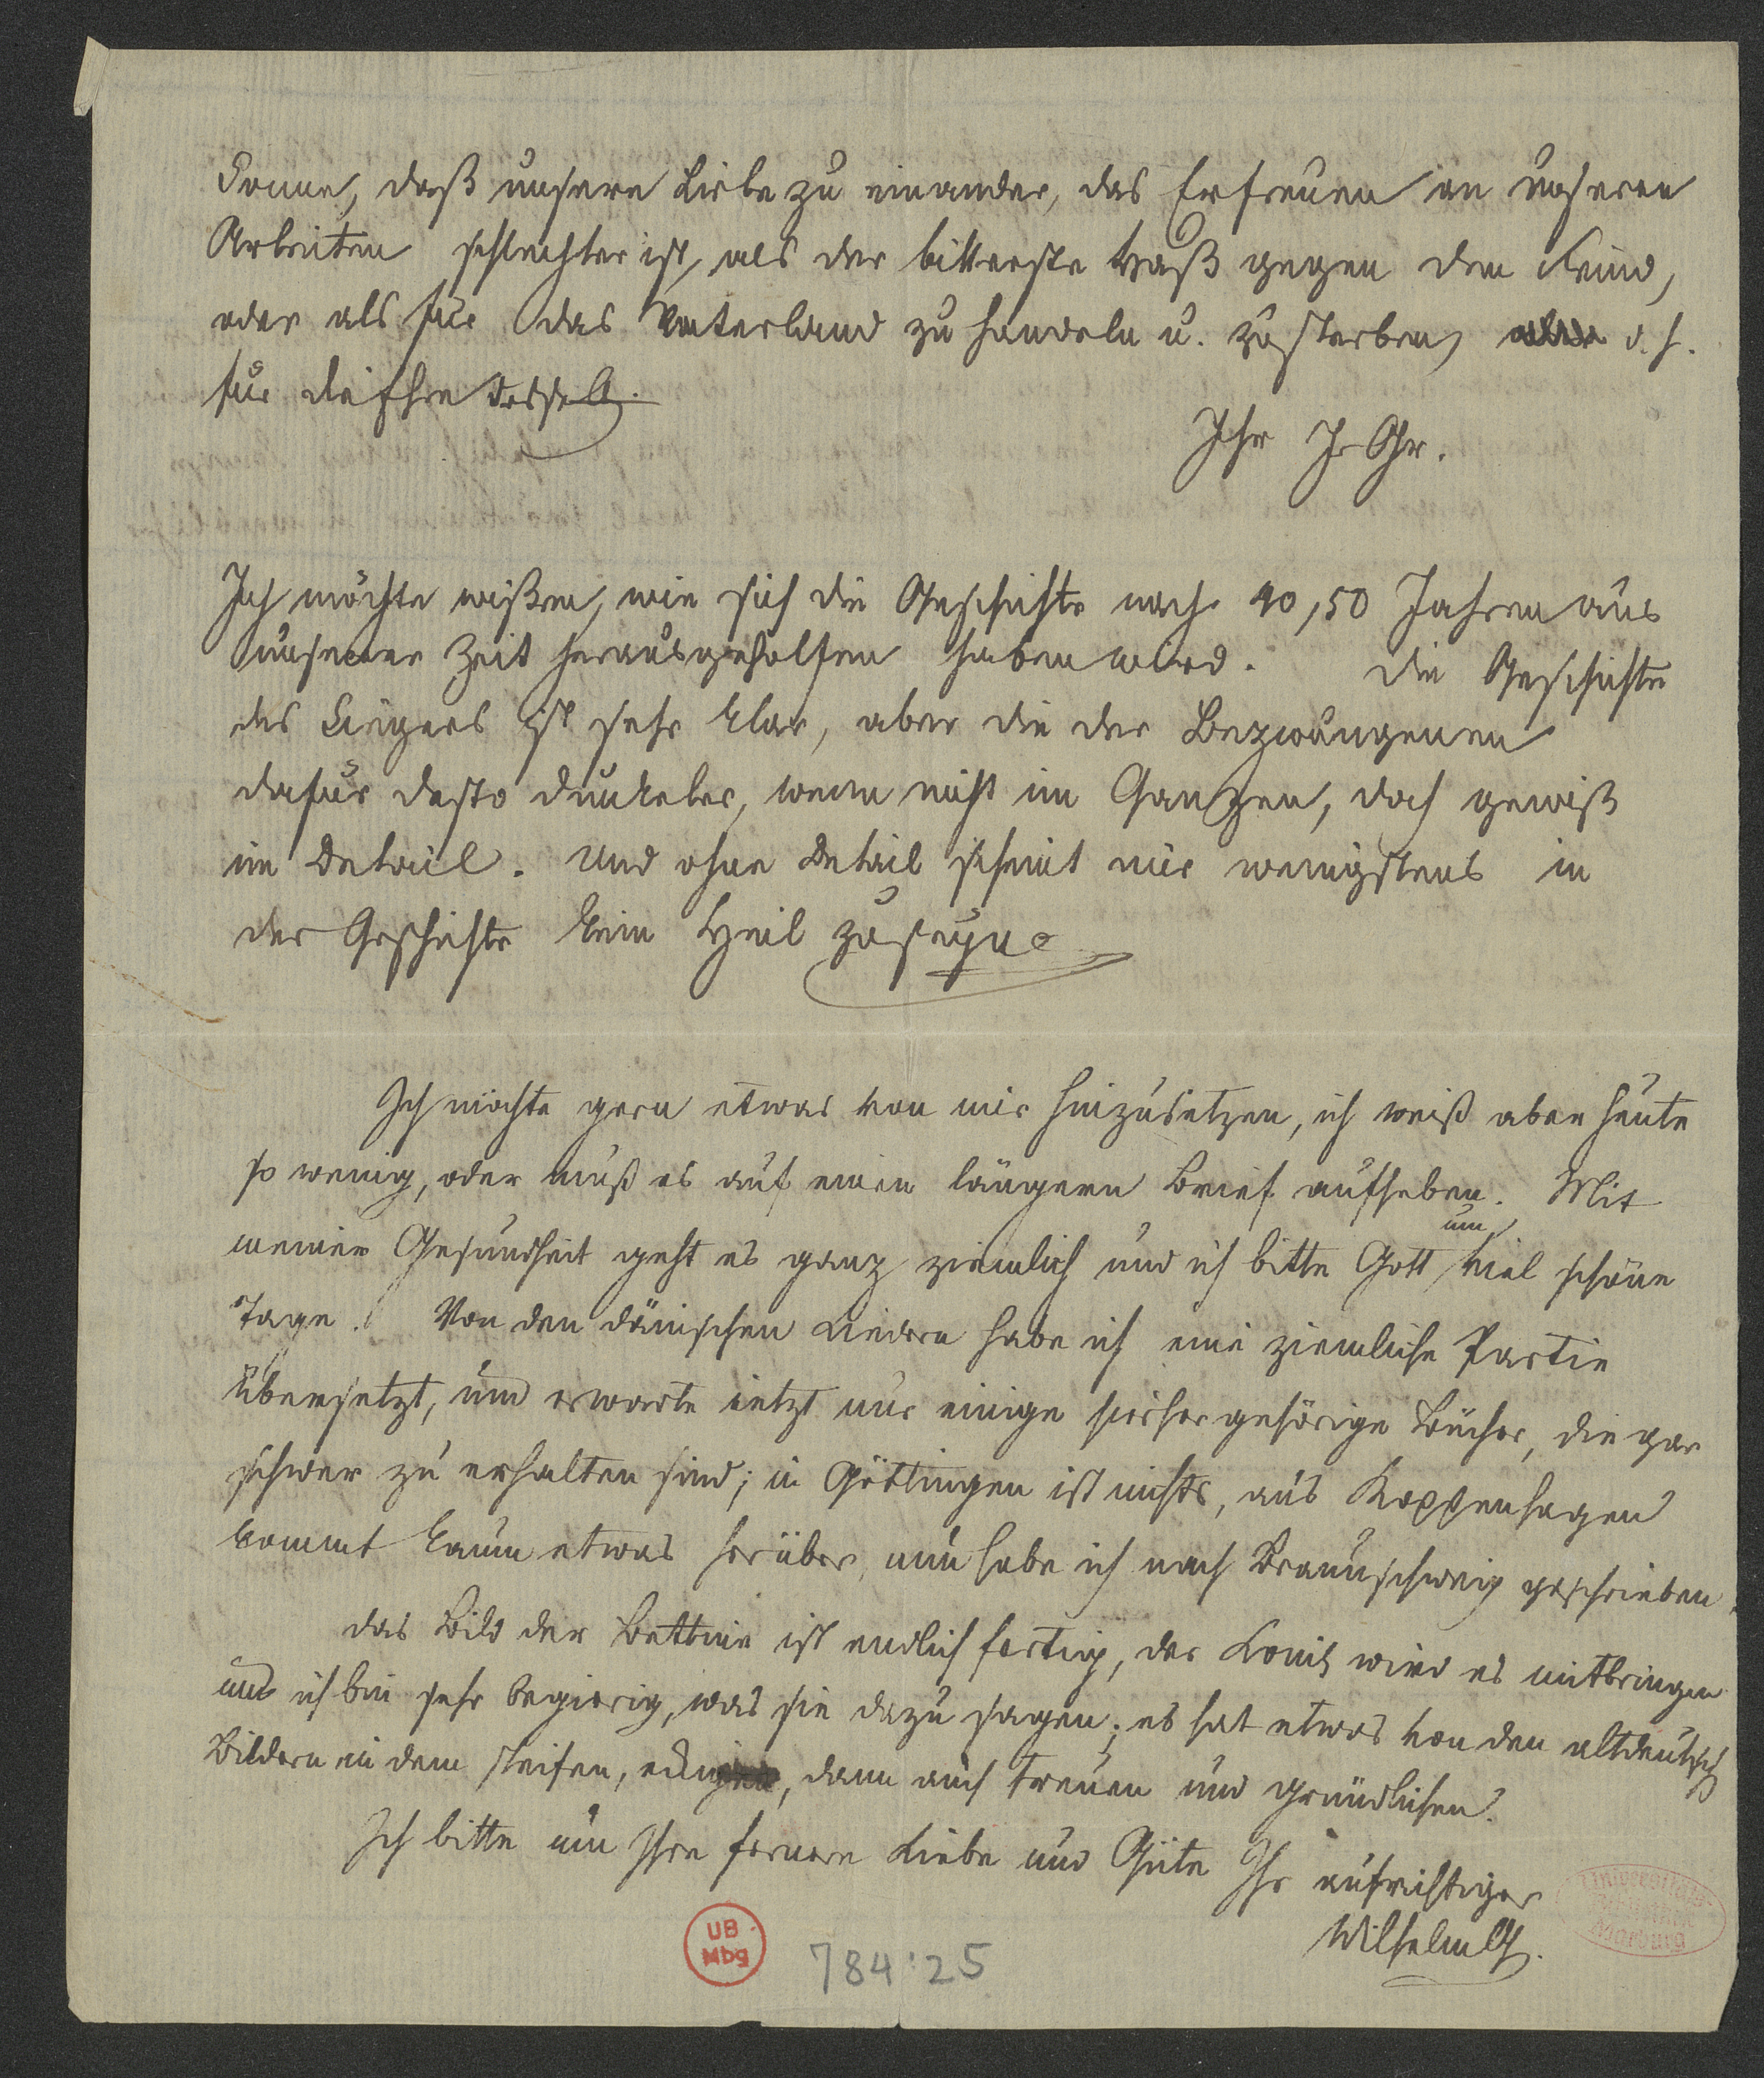 Sonne, daß unsere Liebe zu einander, das Erfreuen an unseren
Arbeiten schlechter ist, als der bitterste Haß gegen den Feind,
oder als für das Vaterland zu handeln u. zu sterben, d. h.
für die Ehre desselb.
Ihr J. Gr.
Ich möchte wißen, wie sich die Geschichte nach 40, 50 Jahren aus
unserer Zeit herausgeholfen haben wird. Die Geschichte
des Siegers ist sehr klar, aber die der Bezwungenen
dafür desto dunkeler, wenn nicht im Ganzen, doch gewiß
im Detail. Und ohne Detail scheint mir wenigstens in
der Geschichte kein Heil zu seyn.
Ich möchte gern etwas von mir hinzusetzen, ich weiß aber heute
so wenig, oder muß es auf einen längern Brief aufheben. Mit
meiner Gesundheit geht es ganz ziemlich und ich bitte Gott um viel schöne
Tage. Von den dänischen Liedern habe ich eine ziemliche Partie
übersetzt, und erwarte jetzt nur einige hierher gehörige Bücher, die gar
schwer zu erhalten sind; in Göttingen ist nichts, aus Koppenhagen
kommt kaum etwas herüber, nun habe ich nach Braunschweig geschrieben.
das Bild der Bettine ist endlich fertig, der Louis wird es mitbringen
und ich bin sehr begierig, was sie dazu sagen; es hat etwas von den altdeutsch
Bildern in dem steifen, dann auch treuen und gründlichen.
Ich bitte um Ihre fernere Liebe und Güte Ihr aufrichtiger
Wilhelm G.
UB
Mbg
784:25
Universitäts-
Bibliothek
Marburg